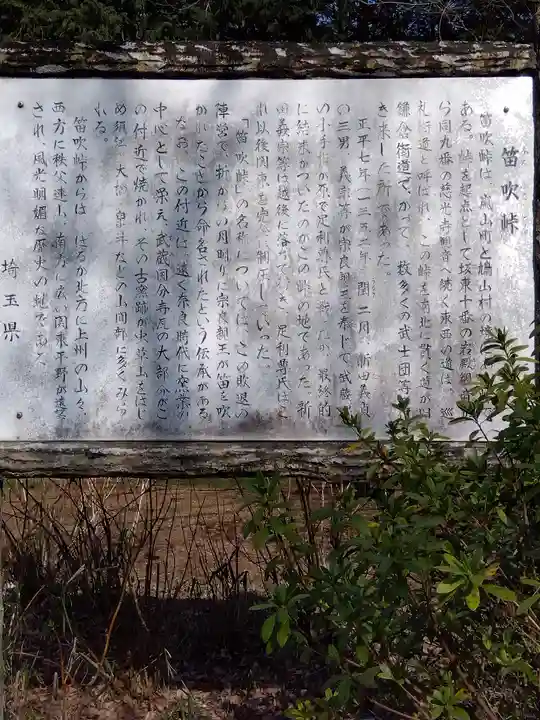 笛吹峠
笛吹峠は、嵐山町と鳩山村の境に
ある。峠を起点として坂東十番の岩殿観音
ら同九番の慈光寺観音へ続く東西の道は、巡
礼街道と呼ばれ、この峠を南北に貫く道が旧
鎌倉街道で、かつて、数多くの武士団等
き来した所であった。
正平七年(一三五二年)閏二月、新田義貞
の三男、義宗等が宗良親王を奉じて、武蔵
い小手指ヶ原で足利尊氏と戦ったが、最終的
に結末がついたのがこの峠の地であった。新
田義宗等は越後に落ちてゆき、足利尊氏は
れ以後関東を完全に制圧していった。
「笛吹峠」の名称については、この敗退の
陣営で、折からの月明りに宗良親王が笛を吹
かれたことから命名されたという伝承がある。
なお、この付近は、遠く奈良時代に窯業の
中心として栄え、武蔵国分寺瓦の大部分がこ
の付近で焼かれ、その古窯跡が虫草山をはじ
め須江、大橋、泉井などの山間部に多くみら
れる。
笛吹峠からは、はるか北方に上州の山々、
西方に秩父連山、南方に広い関東平野が遠望
され、風光明媚な歴史の
埼玉県